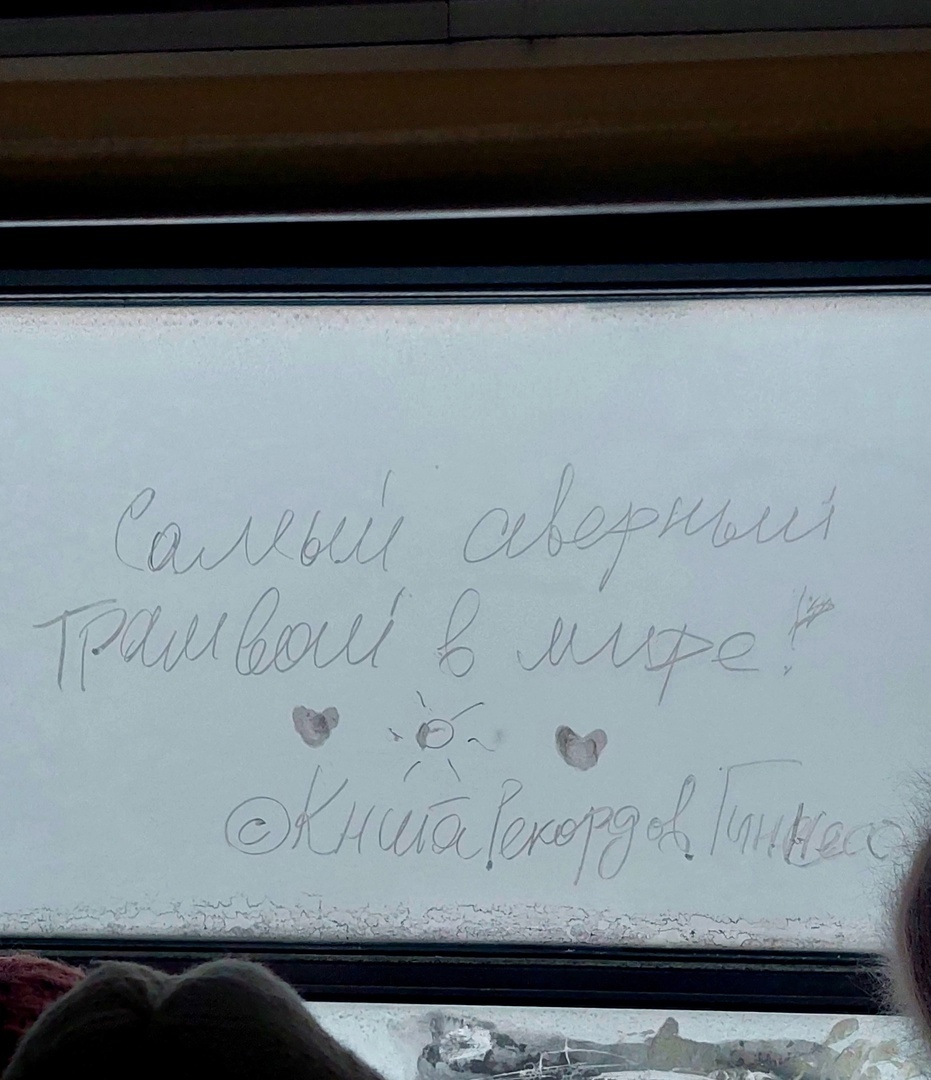 Самый северный
трамвай в мире!
© Книга Рекордов Гиннеса